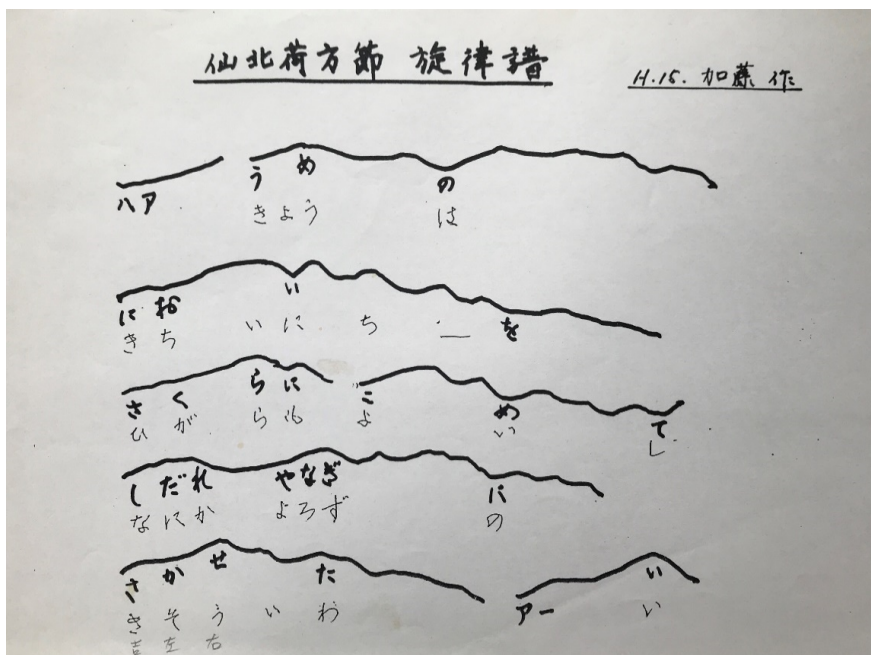 仙北荷方節 旋律譜
H.15. 加藤 作
ハア う め の
きよう は
に お い を
き ち い に ち ー
さ く ら に こ め て
ひ が ら も よ い し
しだれ やなぎ に
なにか よろず の
さ か せ た アー い
き そ う い わ い
左 右